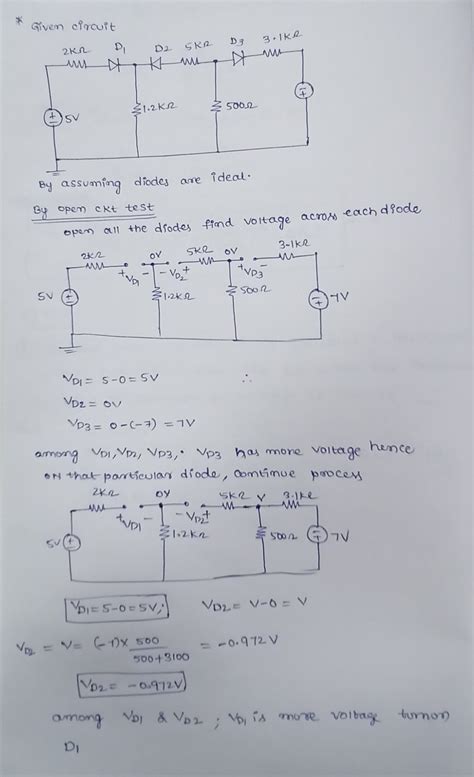 * Given circuit
2kΩ D1 D2 5kΩ D3 3.1kΩ
5V 1.2kΩ 500Ω
By assuming diodes are ideal.
By open ckt test
open all the diodes find voltage across each diode
2kΩ 0V 5kΩ 0V 3.1kΩ
+ VD1 - - VD2 + + VD3 -
5V 1.2kΩ 500Ω 7V
VD1 = 5-0 = 5V ∴
VD2 = 0V
VD3 = 0-(-7) = 7V
among VD1, VD2, VD3, VD3 has more voltage hence
ON that particular diode, continue process
2kΩ 0V 5kΩ V 3.1kΩ
+ VD1 - - VD2 +
5V 1.2kΩ 500Ω 7V
VD1 = 5-0 = 5V; VD2 = V-0 = V
VD2 = V = (-7) × 500 / 500+3100 = -0.972V
VD2 = -0.972V
among VD1 & VD2 ; VD1 is more voltage turnon
D1